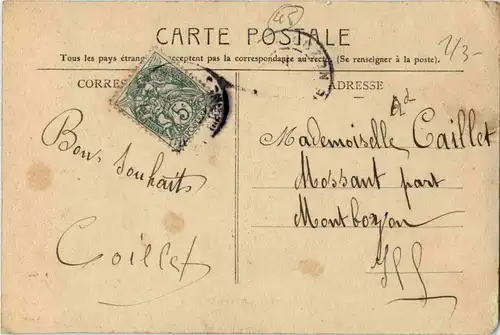 45
CARTE POSTALE
1/3-
Tous les pays étrang acceptent pas la correspondance au rect (Se renseigner à la poste).
CORRES
ADRESSE
5
Bons Souhaits
Caillet
Mademoiselle Caillet
Mossant par
Montbozon